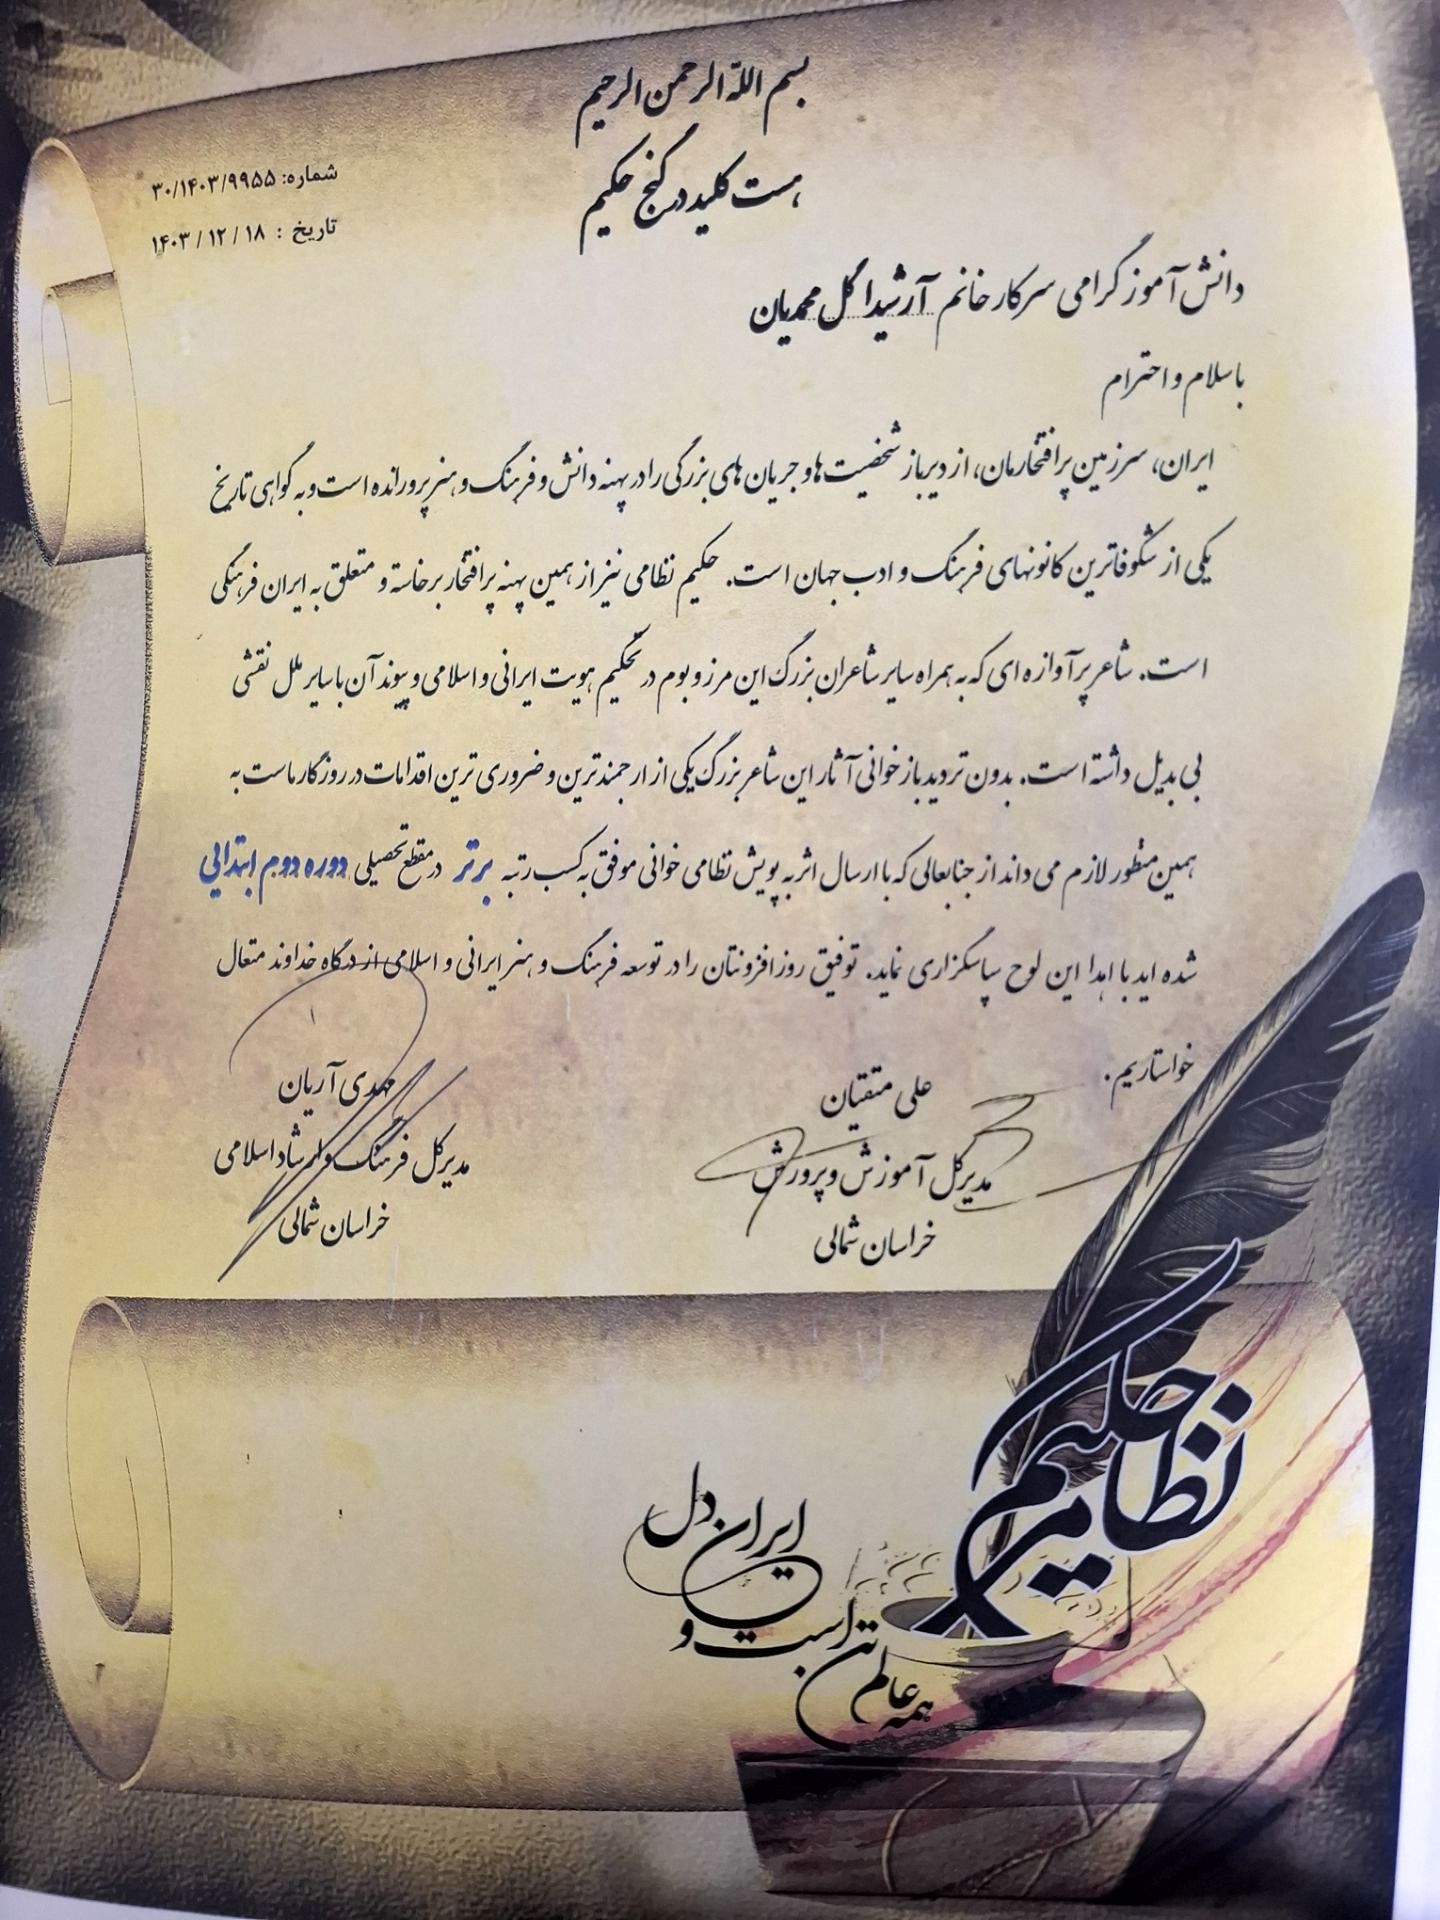 بسم الله الرحمن الرحیم
هست کلید در گنج حکیم
شماره: ۳۰/۱۴۰۳/۹۹۵۵
تاریخ : ۱۴۰۳/۱۲/۱۸
دانش آموز گرامی سرکار خانم آرشیدا گل محمدیان
با سلام و احترام
ایران، سرزمین پرافتخارمان، از دیرباز شخصیت ها و جریان های بزرگی را در پهنه دانش و فرهنگ و هنر پرورانده است و به گواهی تاریخ
یکی از شکوفاترین کانونهای فرهنگ و ادب جهان است. حکیم نظامی نیز از همین پهنه پرافتخار برخاسته و متعلق به ایران فرهنگی
است. شاعر پرآوازه ای که به همراه سایر شاعران بزرگ این مرز و بوم در تحکیم هویت ایرانی و اسلامی و پیوند آن با سایر ملل نقشی
بی بدیل داشته است. بدون تردید بازخوانی آثار این شاعر بزرگ یکی از ارجمندترین و ضروری ترین اقدامات در روزگار ماست به
همین منظور لازم می داند از جنابعالی که با ارسال اثر به پویش نظامی خوانی موفق به کسب رتبه برتر در مقطع تحصیلی دوره دوم ابتدایی
شده اید با اهدا این لوح سپاسگزاری نماید. توفیق روزافزونتان را در توسعه فرهنگ و هنر ایرانی و اسلامی از درگاه خداوند متعال
خواستاریم.
علی متقیان
مدیرکل آموزش و پرورش
خراسان شمالی
مهدی آریان
مدیرکل فرهنگ و ارشاد اسلامی
خراسان شمالی
حکیم
نظامی
همه عالم تن است و
ایران دل